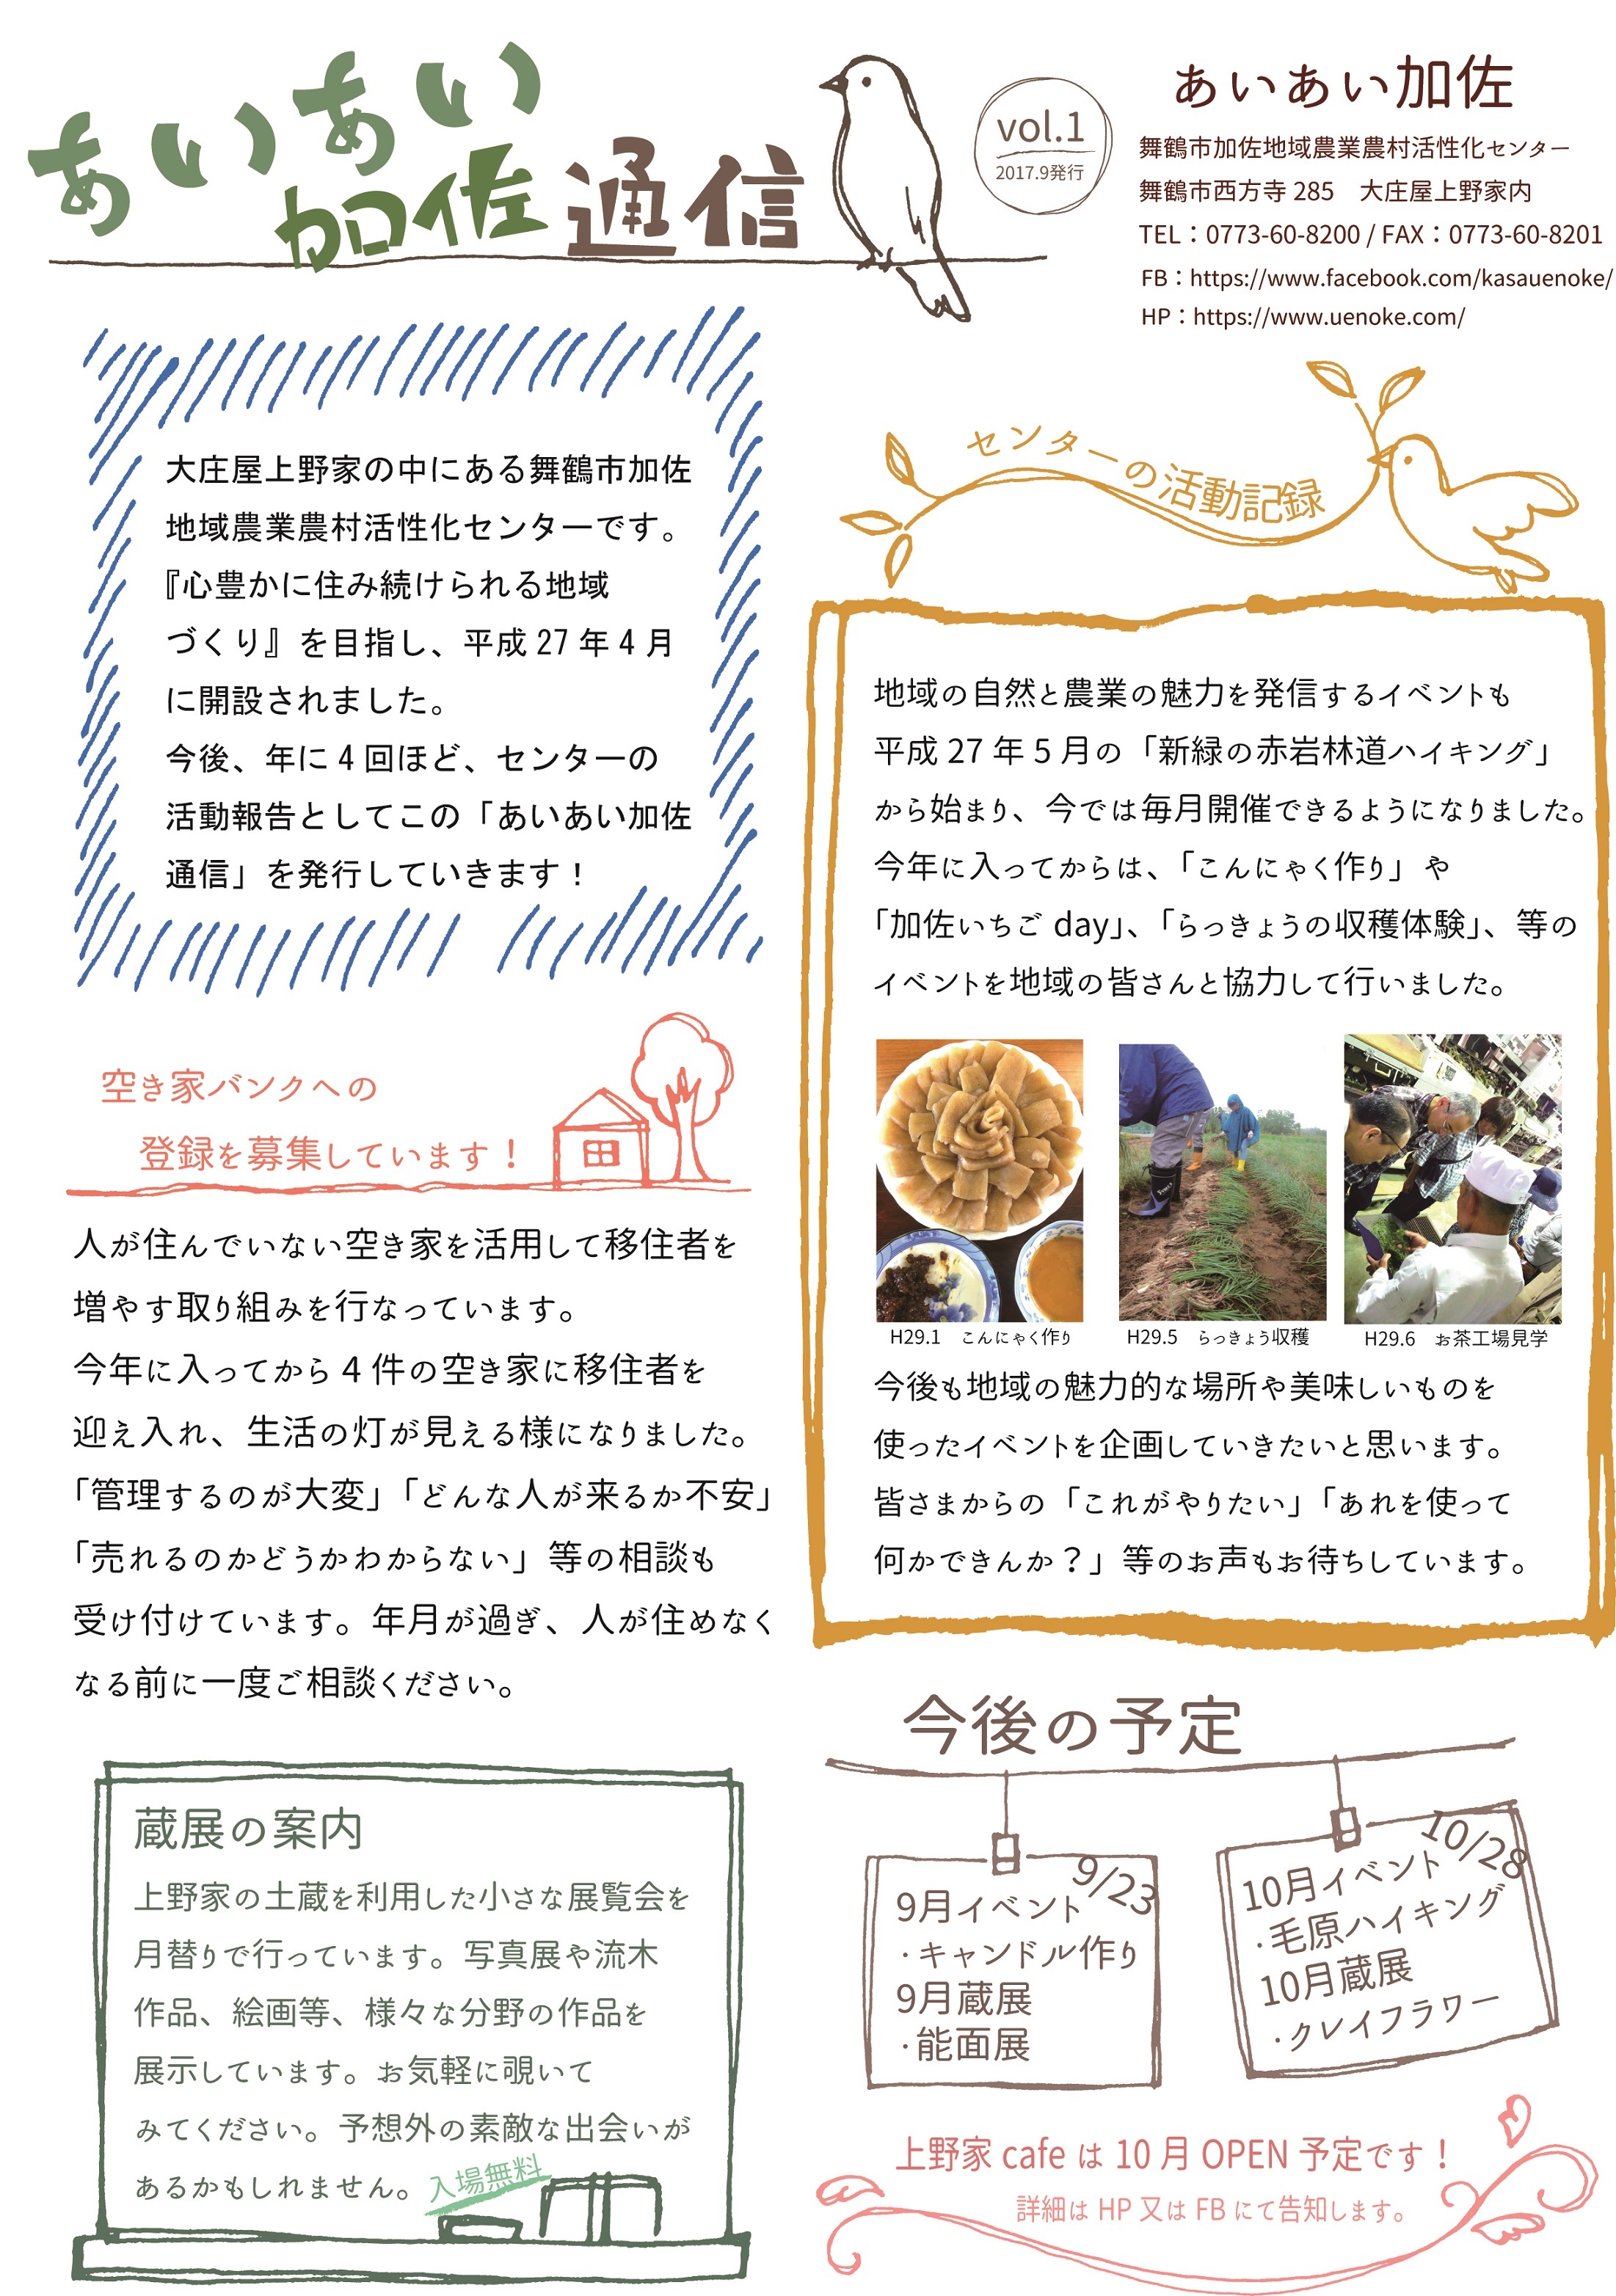 あいあい
加佐通信
vol.1
2017.9発行
あいあい加佐
舞鶴市加佐地域農業農村活性化センター
舞鶴市西方寺 285　大庄屋上野家内
TEL：0773-60-8200 / FAX：0773-60-8201
FB：https://www.facebook.com/kasauenoke/
HP：https://www.uenoke.com/
大庄屋上野家の中にある舞鶴市加佐
地域農業農村活性化センターです。
『心豊かに住み続けられる地域
づくり』を目指し、平成 27 年 4 月
に開設されました。
今後、年に 4 回ほど、センターの
活動報告としてこの「あいあい加佐
通信」を発行していきます！
空き家バンクへの
登録を募集しています！
人が住んでいない空き家を活用して移住者を
増やす取り組みを行なっています。
今年に入ってから 4 件の空き家に移住者を
迎え入れ、生活の灯が見える様になりました。
「管理するのが大変」「どんな人が来るか不安」
「売れるのかどうかわからない」等の相談も
受け付けています。年月が過ぎ、人が住めなく
なる前に一度ご相談ください。
蔵展の案内
上野家の土蔵を利用した小さな展覧会を
月替りで行っています。写真展や流木
作品、絵画等、様々な分野の作品を
展示しています。お気軽に覗いて
みてください。予想外の素敵な出会いが
あるかもしれません。
入場無料
センターの活動記録
地域の自然と農業の魅力を発信するイベントも
平成 27 年 5 月の「新緑の赤岩林道ハイキング」
から始まり、今では毎月開催できるようになりました。
今年に入ってからは、「こんにゃく作り」や
「加佐いちご day」、「らっきょうの収穫体験」、等の
イベントを地域の皆さんと協力して行いました。
H29.1　こんにゃく作り
H29.5　らっきょう収穫
H29.6　お茶工場見学
今後も地域の魅力的な場所や美味しいものを
使ったイベントを企画していきたいと思います。
皆さまからの「これがやりたい」「あれを使って
何かできんか？」等のお声もお待ちしています。
今後の予定
9/23
9月イベント
・キャンドル作り
9月蔵展
・能面展
10/28
10月イベント
・毛原ハイキング
10月蔵展
・クレイフラワー
上野家 cafe は 10 月 OPEN 予定です！
詳細は HP 又は FB にて告知します。